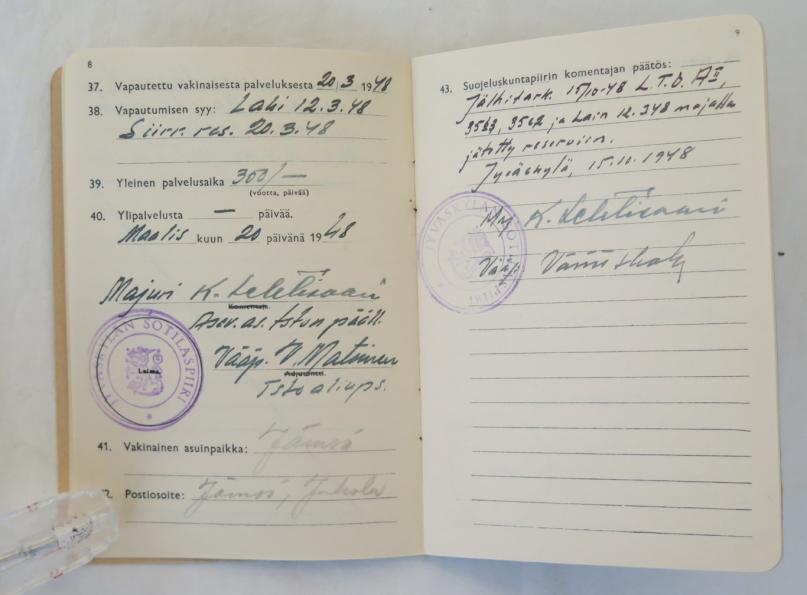 8
37. Vapautettu vakinaisesta palveluksesta 20/3 1948
38. Vapautumisen syy: Laki 12.3.48
Siirr. res. 20.3.48
39. Yleinen palvelusaika 300/—
(vuotta, päivää)
40. Ylipalvelusta — päivää.
Maalis kuun 20 päivänä 1948
Majuri K. Lehtisaari
Komentaja.
Asev. as. tston pääll.
JYVÄSKYLÄN SOTILASPIIRI
Leima.
Vääp. V. Matinen
Adjutantti.
Tsto aliups.
41. Vakinainen asuinpaikka: Jämsä
42. Postiosoite: Jämsä, Jukola
9
43. Suojeluskuntapiirin komentajan päätös:
Jälkitark. 15/10-48 L.T.O. AII,
ja Lain 12.348 mukaan
jätetty reserviin.
Jyväskylä, 15.10.1948
JYVÄSKYLÄN SOTILASPIIRI
Maj K. Lehtisaari
Vääp.